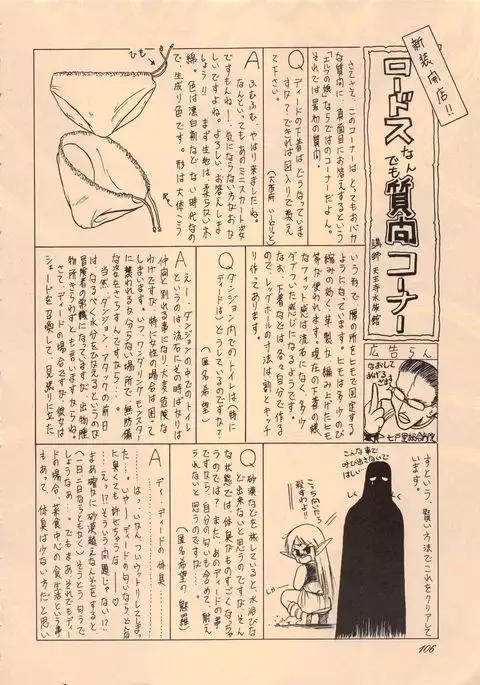 新装開店!!
ロードスなんでも質問コーナー
講師 天王寺水族館
さてさて、このコーナーは、とってもおバカ
な質問に、真面目にお答えするという
「エルフの娘」ならではのコーナーだよん。
それでは最初の質問。
Q ディードの下着はどうなっていま
すか?できれば図入りで教え
て下さい。
(大阪府
A ふむふむ、やはり来ましたね。
なんといっても、あのミニスカート少女
ですもんね!気にならない方がおか
しいですよね。よろしい、お答えしま
しょう!! まず生地は、柔らかい木
綿。色は漂白剤などない時代なの
で、生成り色です。形は大体こう
ひも
広告らん
なおして
あげるっ
七戸里総合病院
いう形で、腰の所をヒモで固定する
ようになっています。ヒモは多少のび
縮みの効く、革製か、編み上げたヒモ
等が使われます。現在の下着の様
なフィット感は流石になく、多少、
ダブついた感じになるようです。
なお、下着などは各々自分で作る
ので、レッグホールの寸法は割とキッチ
リ作ってあります。
Q ダンジョン内でのトイレは(特に
ディードは)どうしているのですか?
(匿名希望)
A えー、ダンジョンの中でのトイレ
というのは、流石にその時ばかりは
仲間と別れる事になり、大変危険な
わけですが、特に女性の場合は困って
しまいます。いつワンダリングモンスター
に襲われるか分らない場所で、無防備
な姿をさらすんですから……。
当然、ダンジョン・アタックの前日
はなるべく水分をひかえるというのが
冒険者の常識になっていますが、出物腫
物所きらわずとも言いますからね。
さて、ディードの場合ですが、彼女は
シェードを召喚して、見張りに立た
すという、賢い方法でこれをクリアして
います。
こんな事で
呼び出さないで
ほしい…
しく
しく
こっち向いたら
殺すわよ!!
Q 砂漠などを旅していると、水浴びな
ど出来ないと思うのですが、そん
な状態では、体臭がものすごくなっちゃ
うのでは?また、あのディードの事
ですから、自分の匂いも含めて、耐え
られないと思うのですが。
(匿名希望の
A ディ、ディードの体臭……
……は、いかん、いかん、ウットリしてしまっ
た。いやー、ディードの匂いなら、どんな
に臭くても許せちゃうな♡
……えっ、!?そういう問題じゃない!?
まあ確かに砂漠越えなんぞをすると
(一日二日ならともなく)そうとう匂うで
しょうなあ。でもまあそれでもディー
ドの場合、菜食中心の食生活という事
もあって、体臭は少ない方だと思い
106